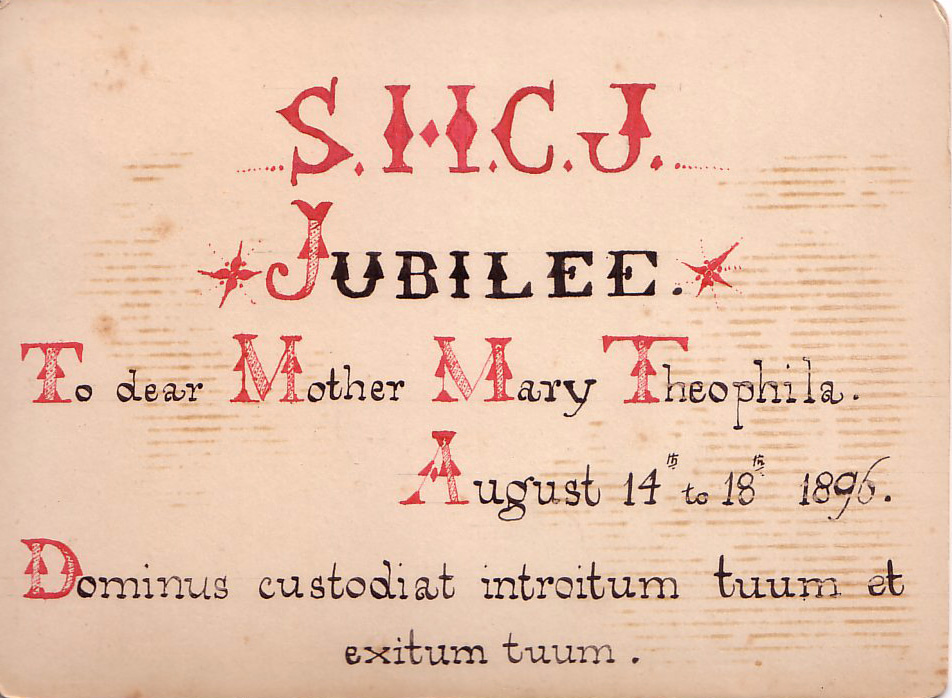 S.H.C.J.
JUBILEE.
To dear Mother Mary Theophila.
August 14th to 18th 1896.
Dominus custodiat introitum tuum et
exitum tuum.